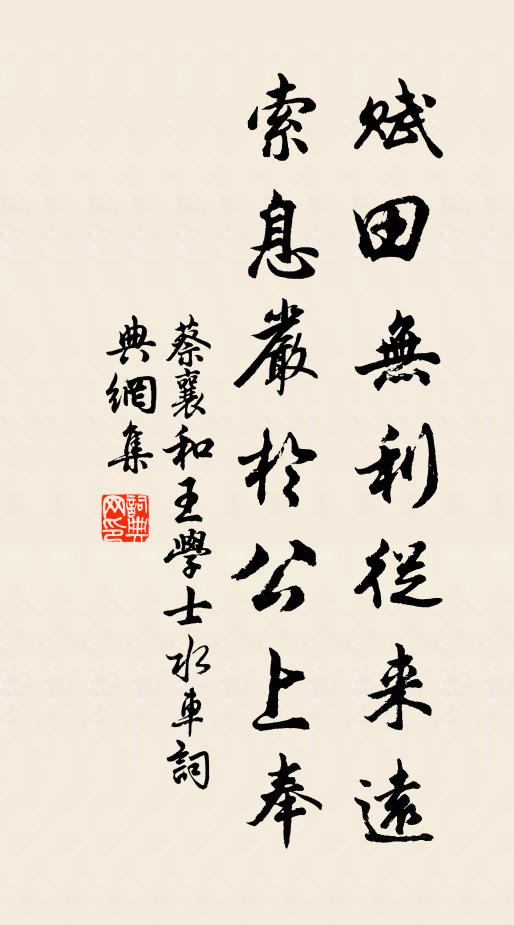 賦田無利從来遠
索息嚴於公上奉
蔡襄和王學士水車詞
典網集
詞典網印